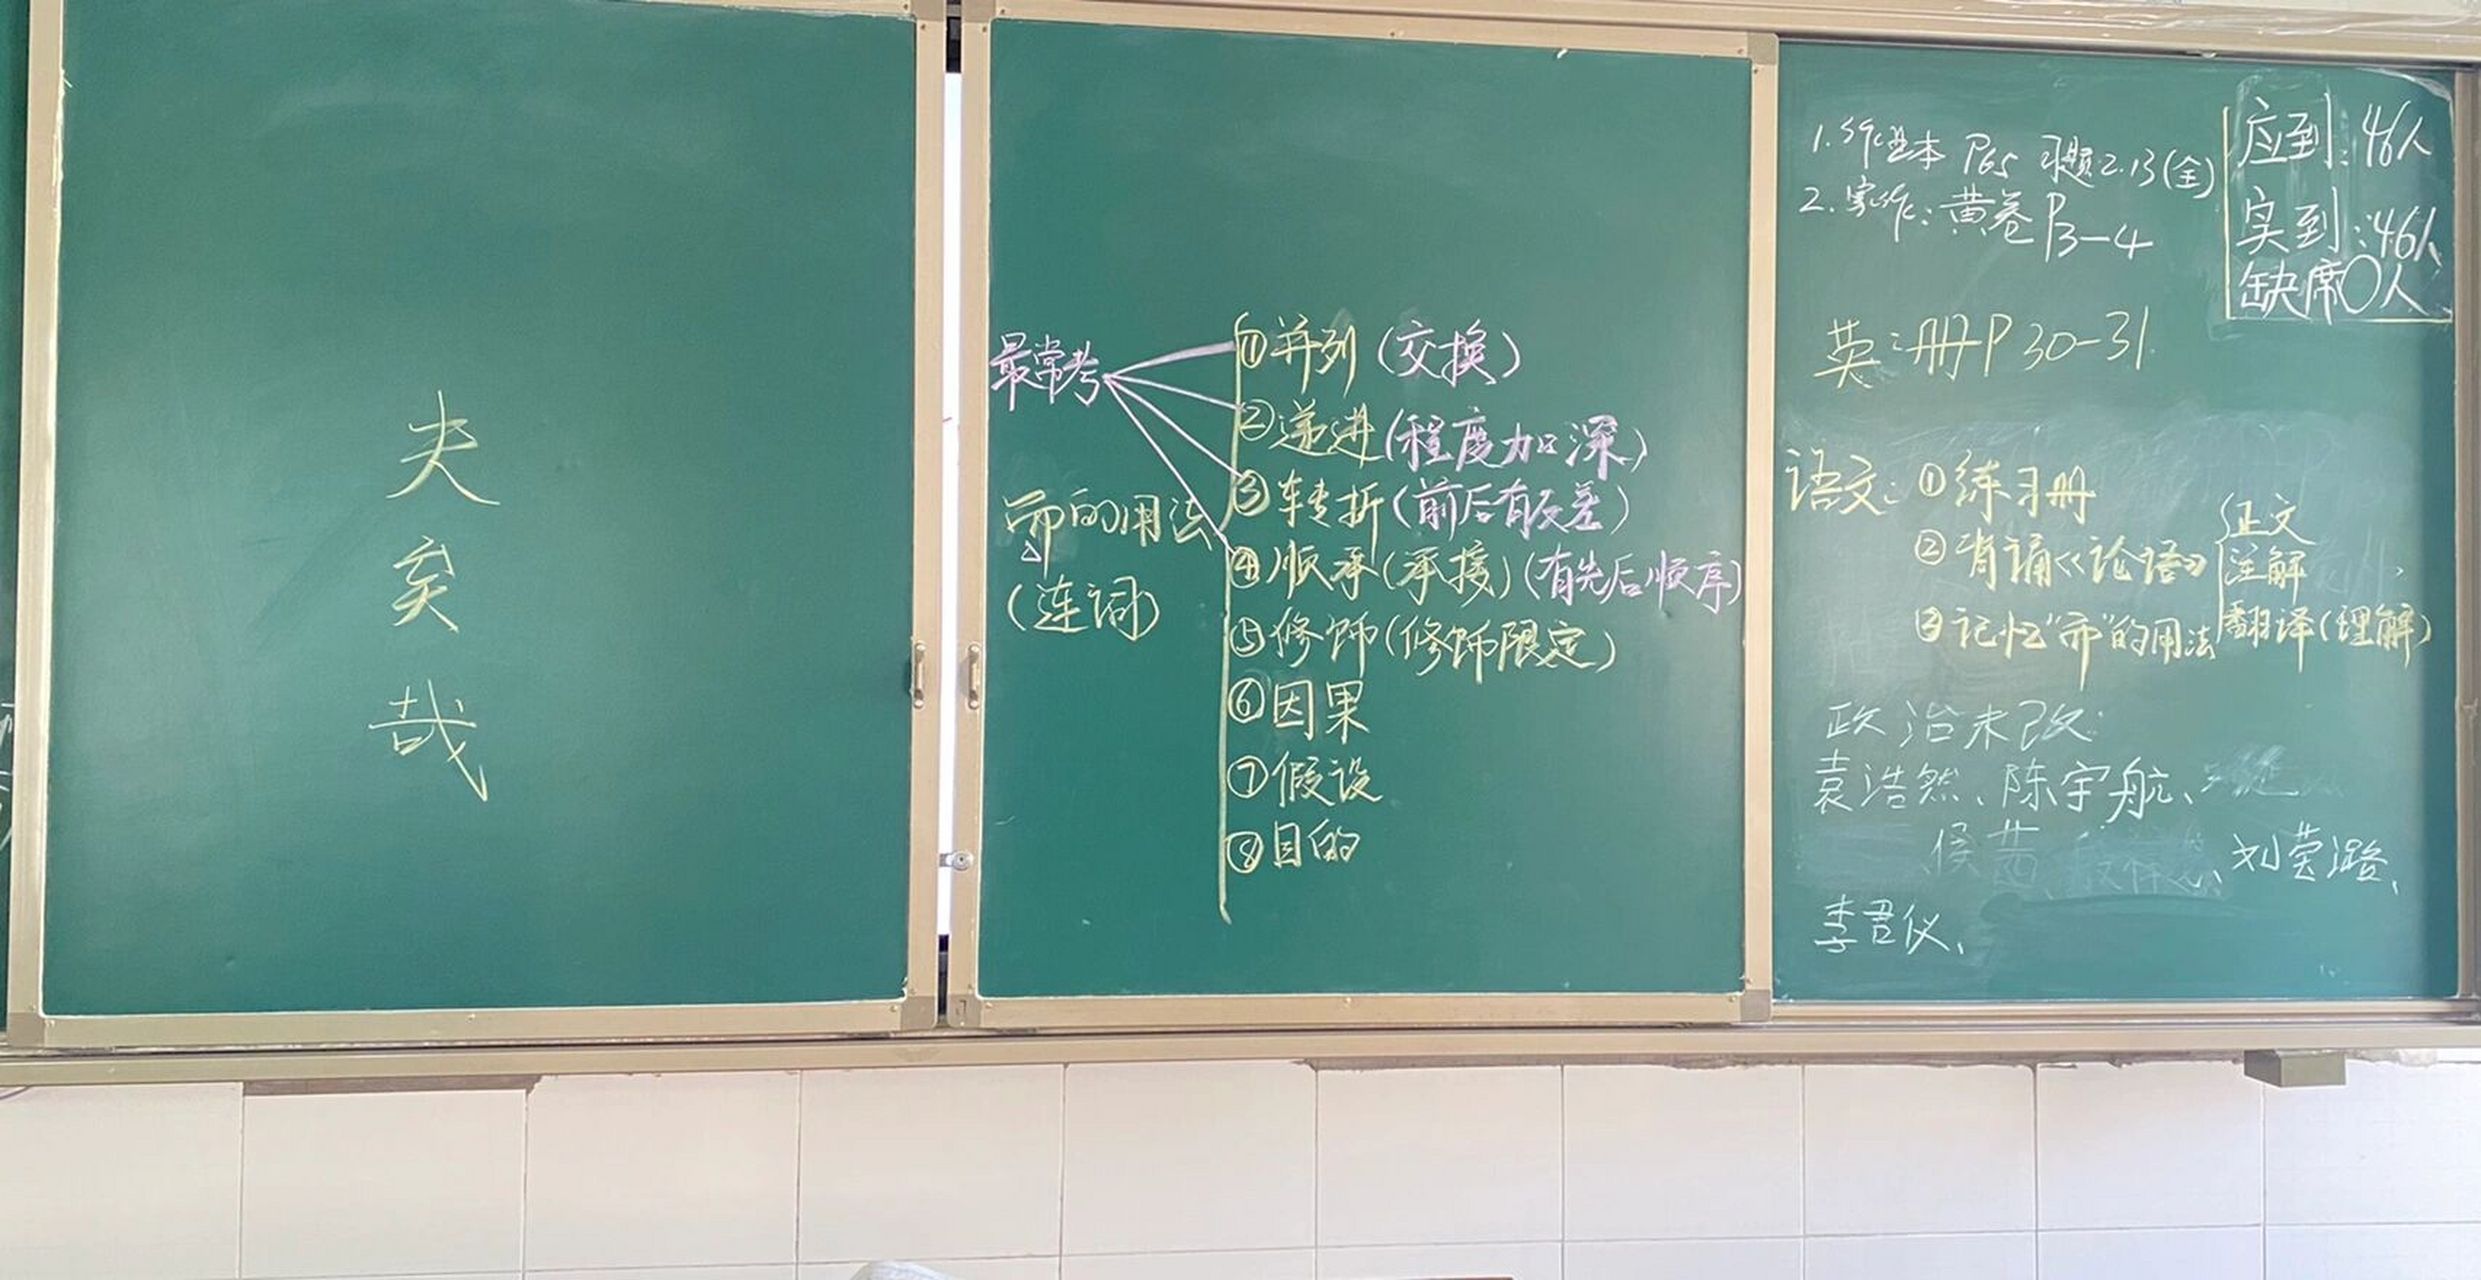 夫
矣
哉
最常考
而的用法
(连词)
①并列(交换)
②递进(程度加深)
③转折(前后有反差)
④顺承(承接)(有先后顺序)
⑤修饰(修饰限定)
⑥因果
⑦假设
⑧目的
1.作业本 P65 习题2.13(全)
2.家作:黄卷P3-4
应到:46人
实到:46人
缺席0人
英:册P30-31
语文:①练习册
②背诵《论语》
正文
注解
翻译(理解)
③记忆"而"的用法
政治未改:
袁浩然、陈宇航、
侯茜、
刘莹潞、
李君仪、